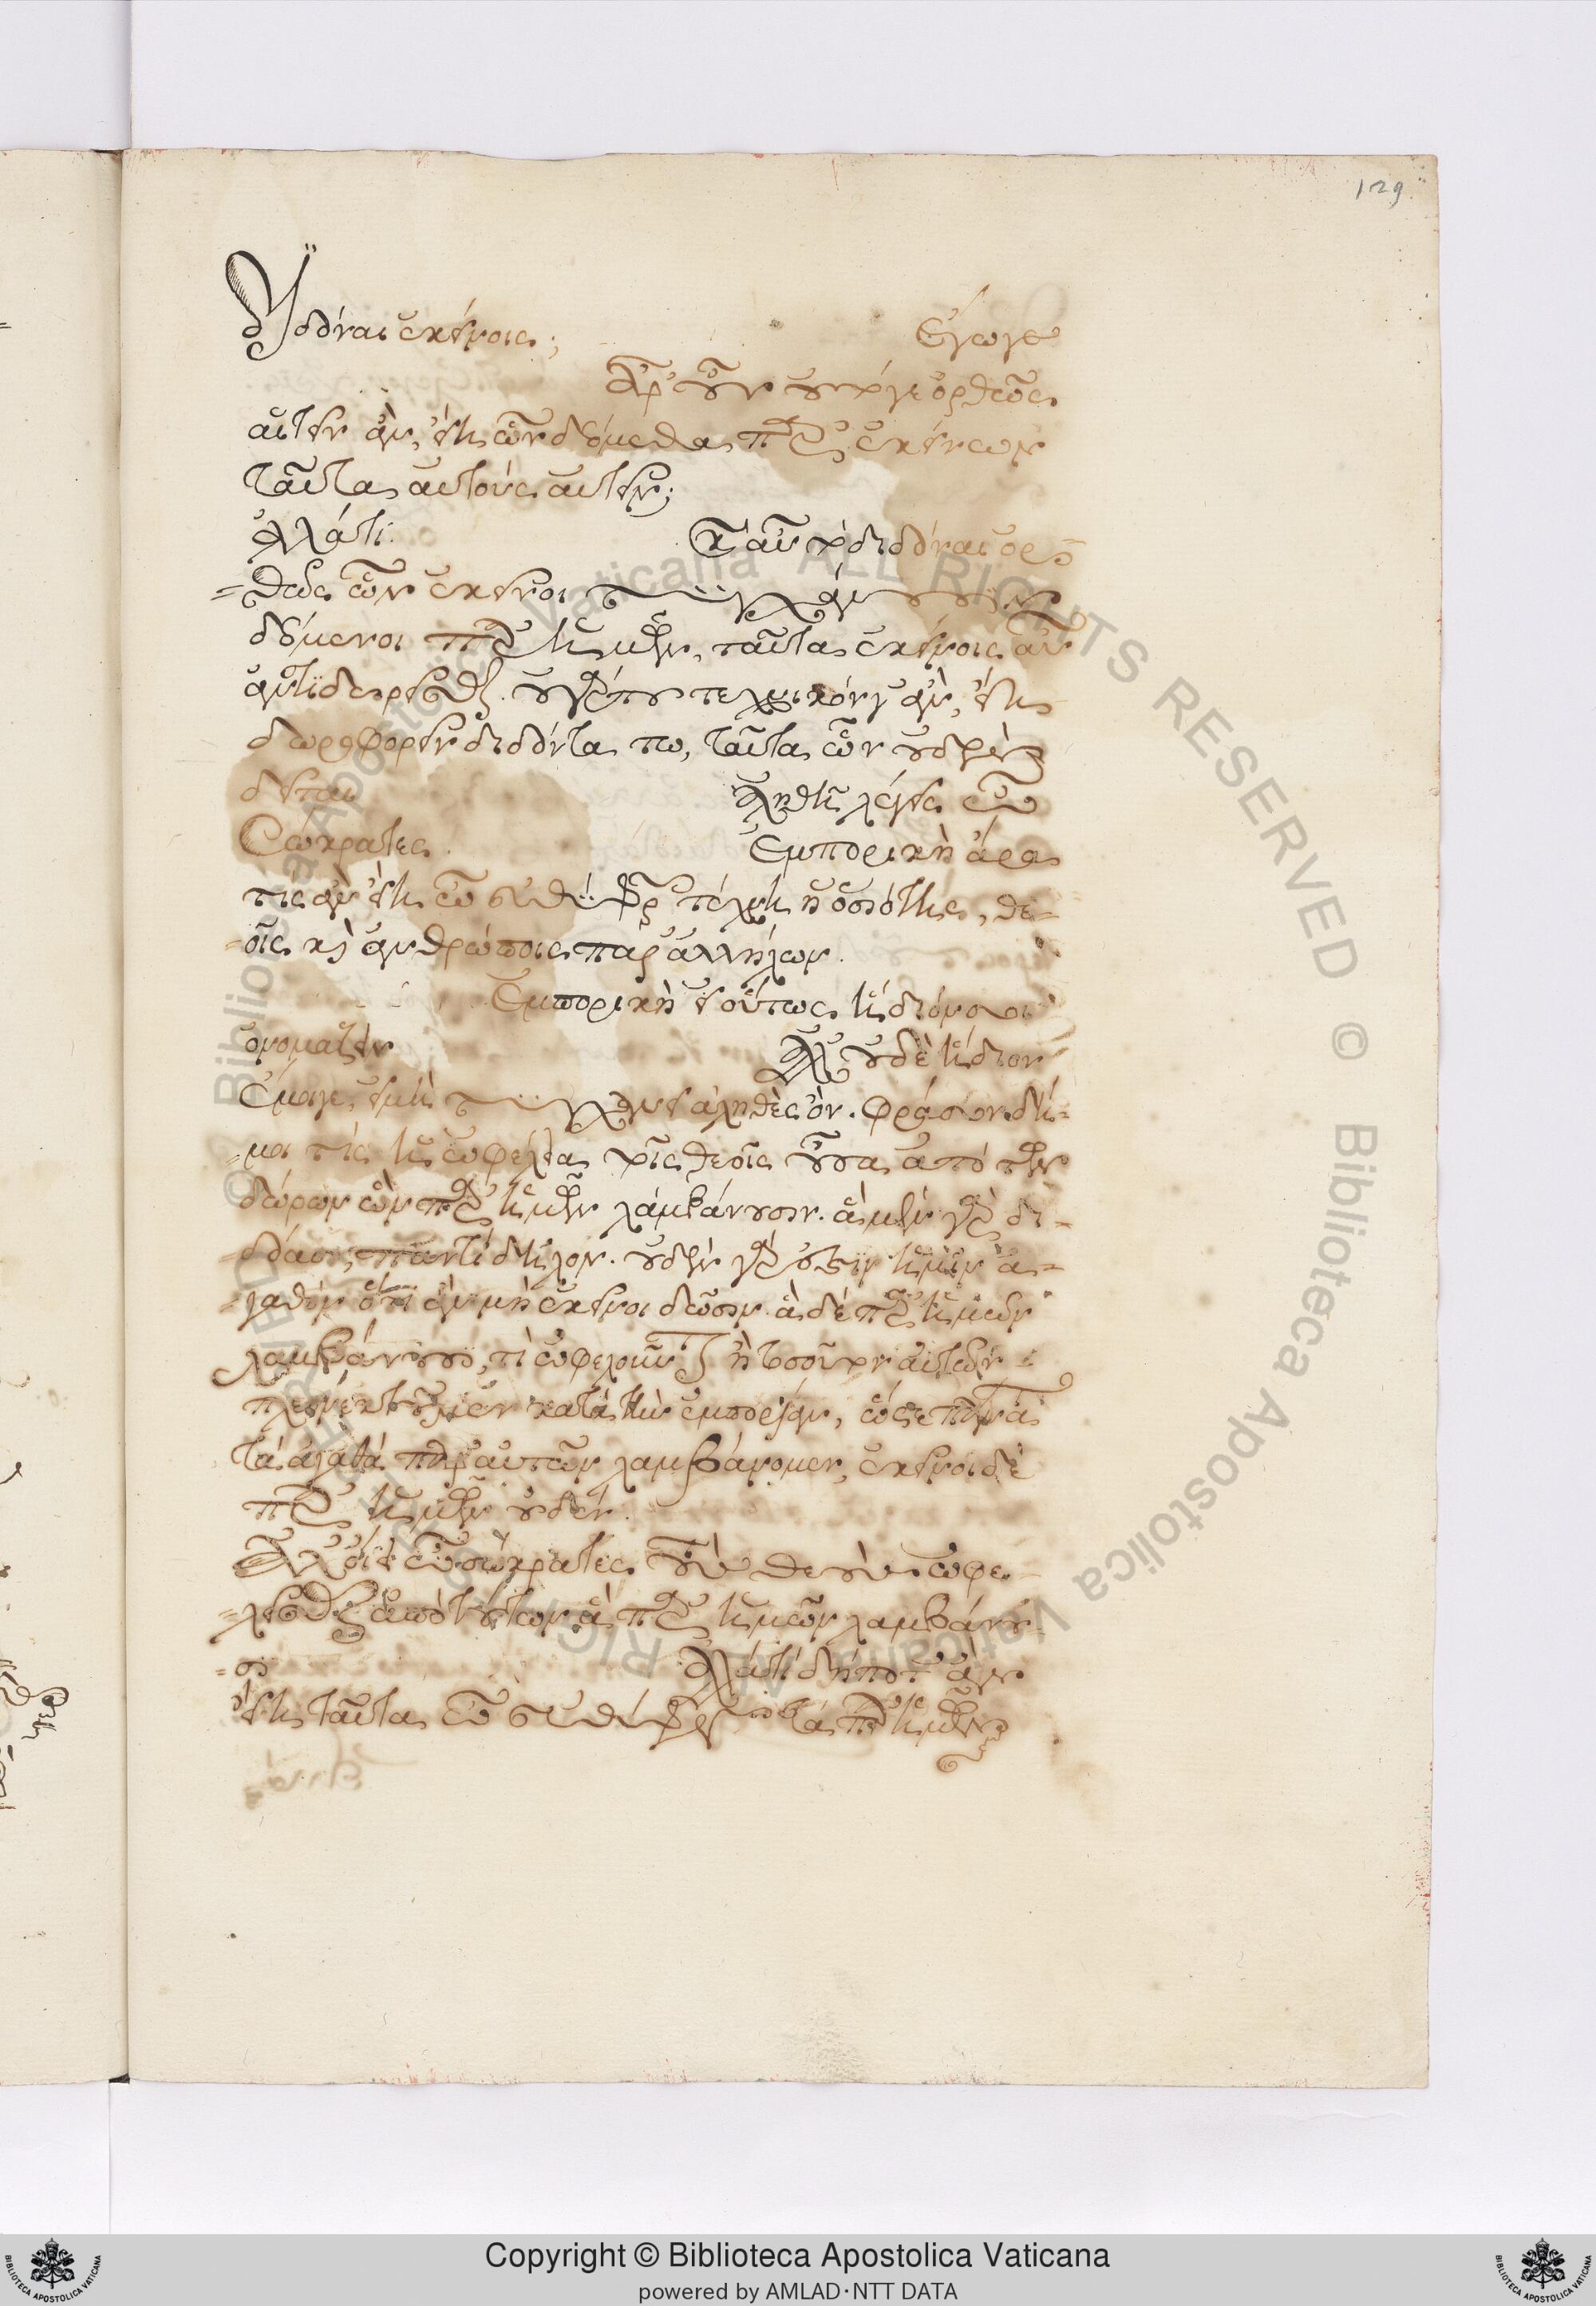 129
διδόναι ἐκείνοις; Ἔγωγε
Ἆρ' οὖν οὐ τόγε ὀρθῶς
αἰτεῖν ἂν εἴη ὧν δεόμεθα παρ' ἐκείνων
ταῦτα αὐτοὺς αἰτεῖν;
Ἀλλὰ τί. Καὶ αὖ τὸ διδόναι ὀρ=
=θῶς ὧν ἐκεῖνοι τυγχάνουσιν
δεόμενοι παρ' ἡμῶν, ταῦτα ἐκείνοις αὖ
ἀντιδωρεῖσθαι. οὐ γάρ που τεχνικόν γ' ἂν εἴη
δωροφορεῖν διδόντα τῳ, ταῦτα ὧν οὐδὲν
δεῖται Ἀληθῆ λέγεις ὦ
Σώκρατες. Ἐμπορικὴ ἄρα
τις ἂν εἴη ὦ εὐθύφρων τέχνη ἡ ὁσιότης, θε=
=οῖς καὶ ἀνθρώποις παρ' ἀλλήλων.
Ἐμπορικὴ εἰ οὕτως ἥδιόν σοι
ὀνομάζειν Ἀλλ' οὐδὲν ἥδιον
ἔμοιγε, εἰ μὴ τυγχάνει ἀληθὲς ὄν. φράσον δή
=μοι τίς ἡ ὠφέλεια τοῖς θεοῖς οὖσα ἀπὸ τῶν
δώρων ὧν παρ' ἡμῶν λαμβάνουσιν. ἃ μὲν γὰρ δι=
=δόασι, παντὶ δῆλον. οὐδὲν γάρ ἐστιν ἡμῖν ἀ=
=γαθόν ὅτι ἂν μὴ ἐκεῖνοι δῶσιν. ἃ δὲ παρ' ἡμῶν
λαμβάνουσι, τί ὠφελοῦνται ἢ τοσοῦτον αὐτῶν
πλεονεκτοῦμεν κατὰ τὴν ἐμπορίαν, ὥστε πάντα
τὰ ἀγαθὰ παρ' αὐτῶν λαμβάνομεν, ἐκεῖνοι δὲ
παρ' ἡμῶν οὐδέν.
Ἀλλ' οἴει ὦ σώκρατες τοὺς θεοὺς ὠφε
=λεῖσθαι ἀπὸ τούτων ἃ παρ' ἡμῶν λαμβάνου
=σι Ἀλλὰ τί δήποτ' ἂν
εἴη ταῦτα ὦ εὐθύφρον τὰ παρ' ἡμῶν